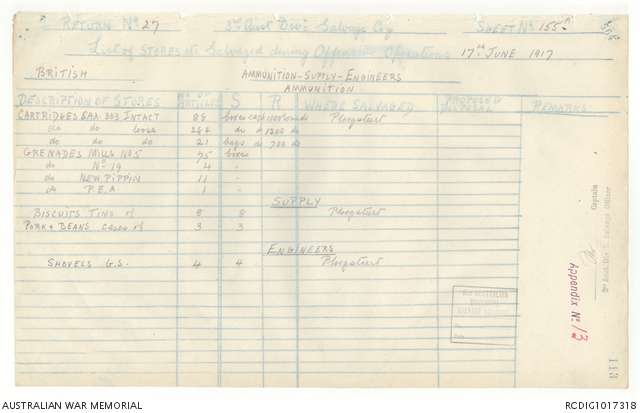 RETURN No 27 3rd Aust. Divn. Salvage Coy SHEET No 155A
List of STORES etc Salvaged during Offensive Operations 17th JUNE 1917
BRITISH AMMUNITION-SUPPLY-ENGINEERS
AMMUNITION
DESCRIPTION OF STORES No OF ARTICLES S R WHERE SALVAGED PROPOSED DISPOSAL REMARKS
CARTRIDGES S.A.A. 303 INTACT 88 boxes each 1000 rounds Ploegsteert
do do loose 286 do do 1200 do
do do do 21 bags do 700 do
GRENADES MILLS No 5 75 boxes
do No 19 4 "
do NEW PIPPIN 11 "
do P.E.A 1 "
SUPPLY
BISCUITS TINS of 8 8 Ploegsteert
PORK & BEANS cases of 3 3
ENGINEERS
SHOVELS G.S. 4 4 Ploegsteert
Captain
3rd Aust. Div. Salvage Officer
Appendix No 13
113
AUSTRALIAN WAR MEMORIAL RCDIG1017318